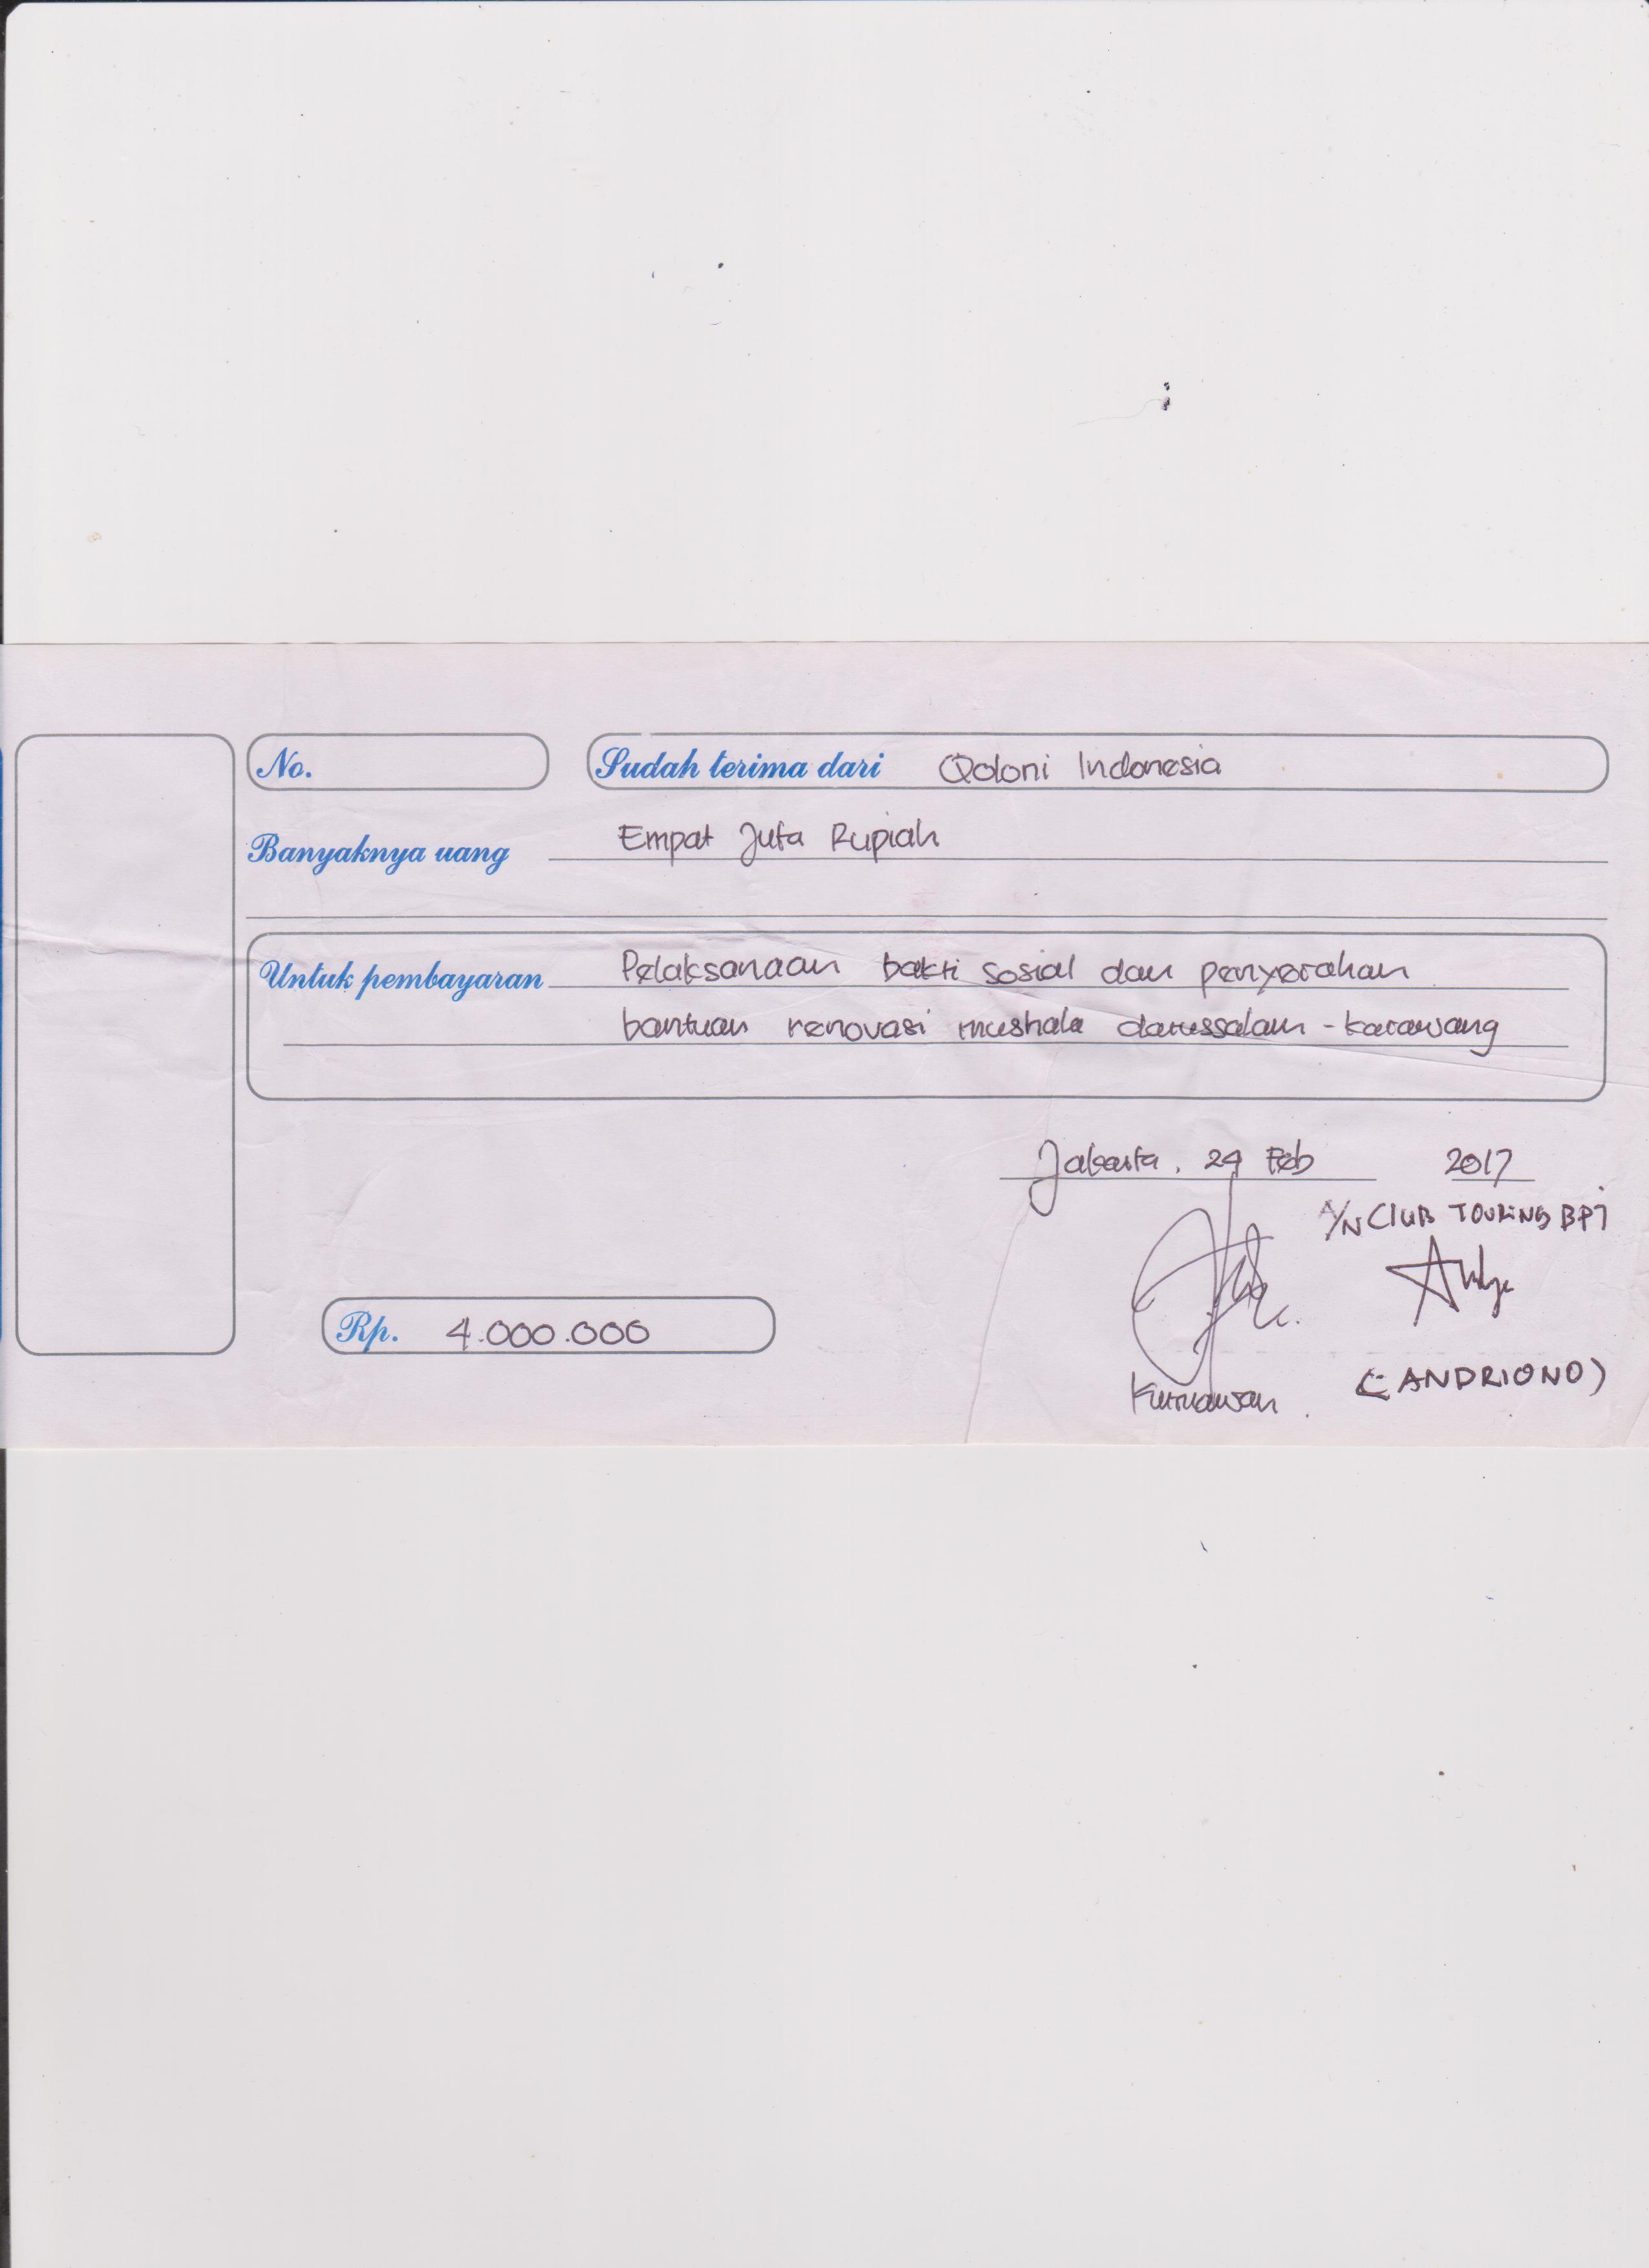 No.
Sudah terima dari Qoloni Indonesia
Banyaknya uang Empat Juta Rupiah
Untuk pembayaran Pelaksanaan bakti sosial dan penyerahan
bantuan renovasi mushala darussalam - karawang
Jakarta, 24 Feb 2017
A/N CLUB TOURING BPJ
Rp. 4.000.000
Kurniawan (ANDRIONO)